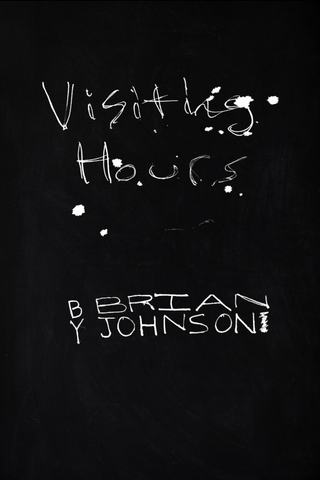 Visiting
Hours
BY BRIAN
JOHNSON